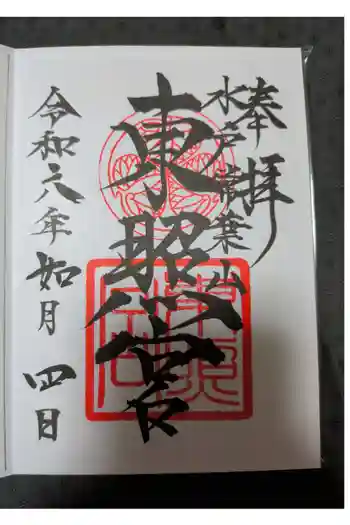 奉拝
水戸常葉山
東照宮
令和六年如月四日